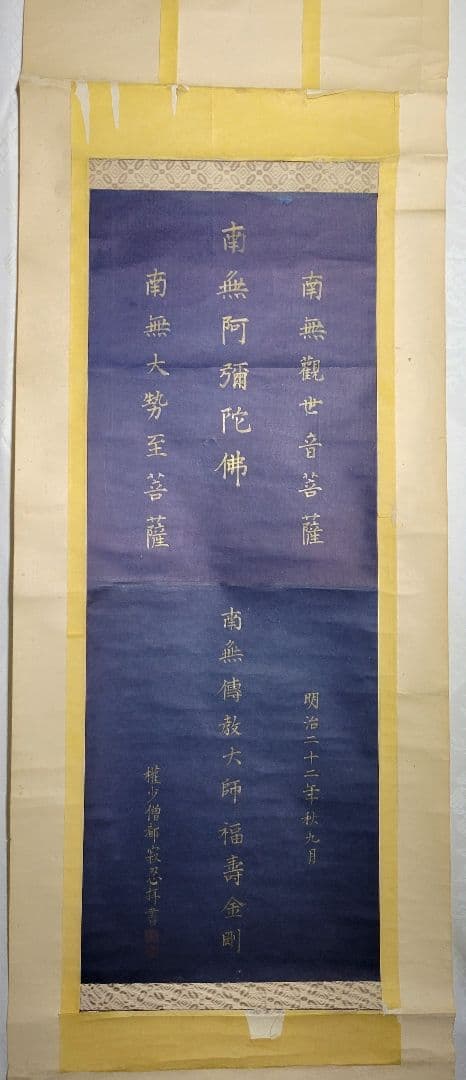 南無觀世音菩薩
南無阿彌陀佛
南無大勢至菩薩
明治二十二年秋九月
南無傳教大師福壽金剛
權少僧都寂忍拝書